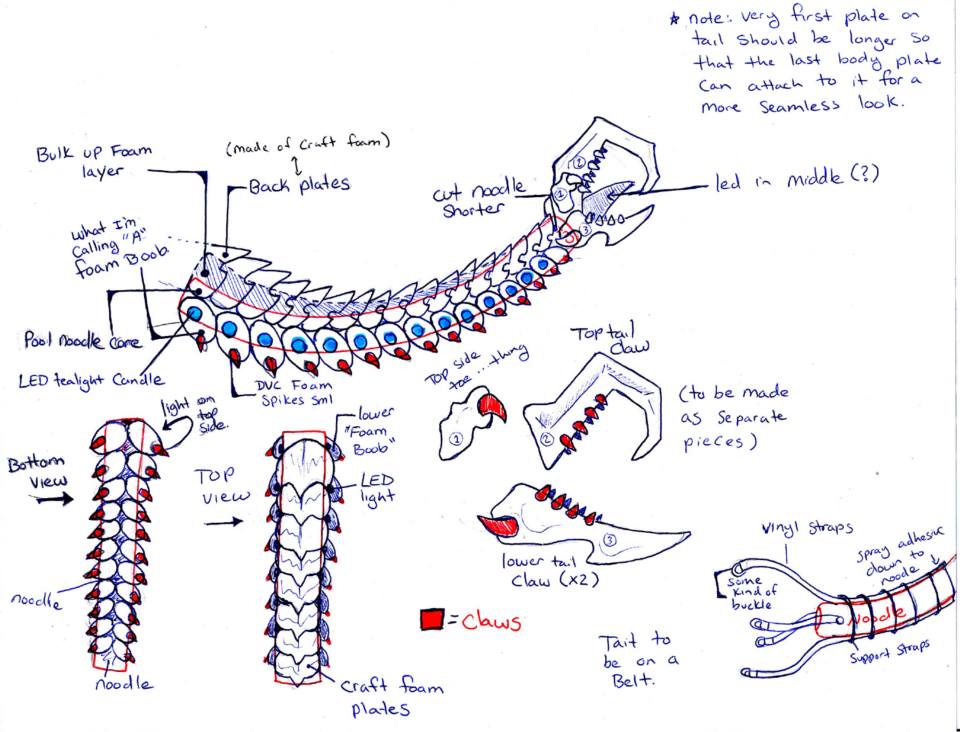 * note: very first plate on
tail should be longer so
that the last body plate
can attach to it for a
more seamless look.
Bulk up Foam
layer
(made of craft foam)
Back plates
cut noodle
shorter
led in middle (?)
what I'm
calling "A"
foam Boob
Pool noodle core
LED tealight candle
DVC Foam
Spikes sml
1
2
3
Top side
toe...thing
1
Top tail
claw
2
(to be made
as separate
pieces)
light on
top
side.
Bottom
View
noodle
noodle
TOP
view
lower
"Foam
Boob"
LED
light
craft foam
plates
3
lower tail
claw (x2)
= Claws
Tail to
be on a
Belt.
vinyl straps
spray adhesive
down to
noodle
some
kind of
buckle
Noodle
Support straps